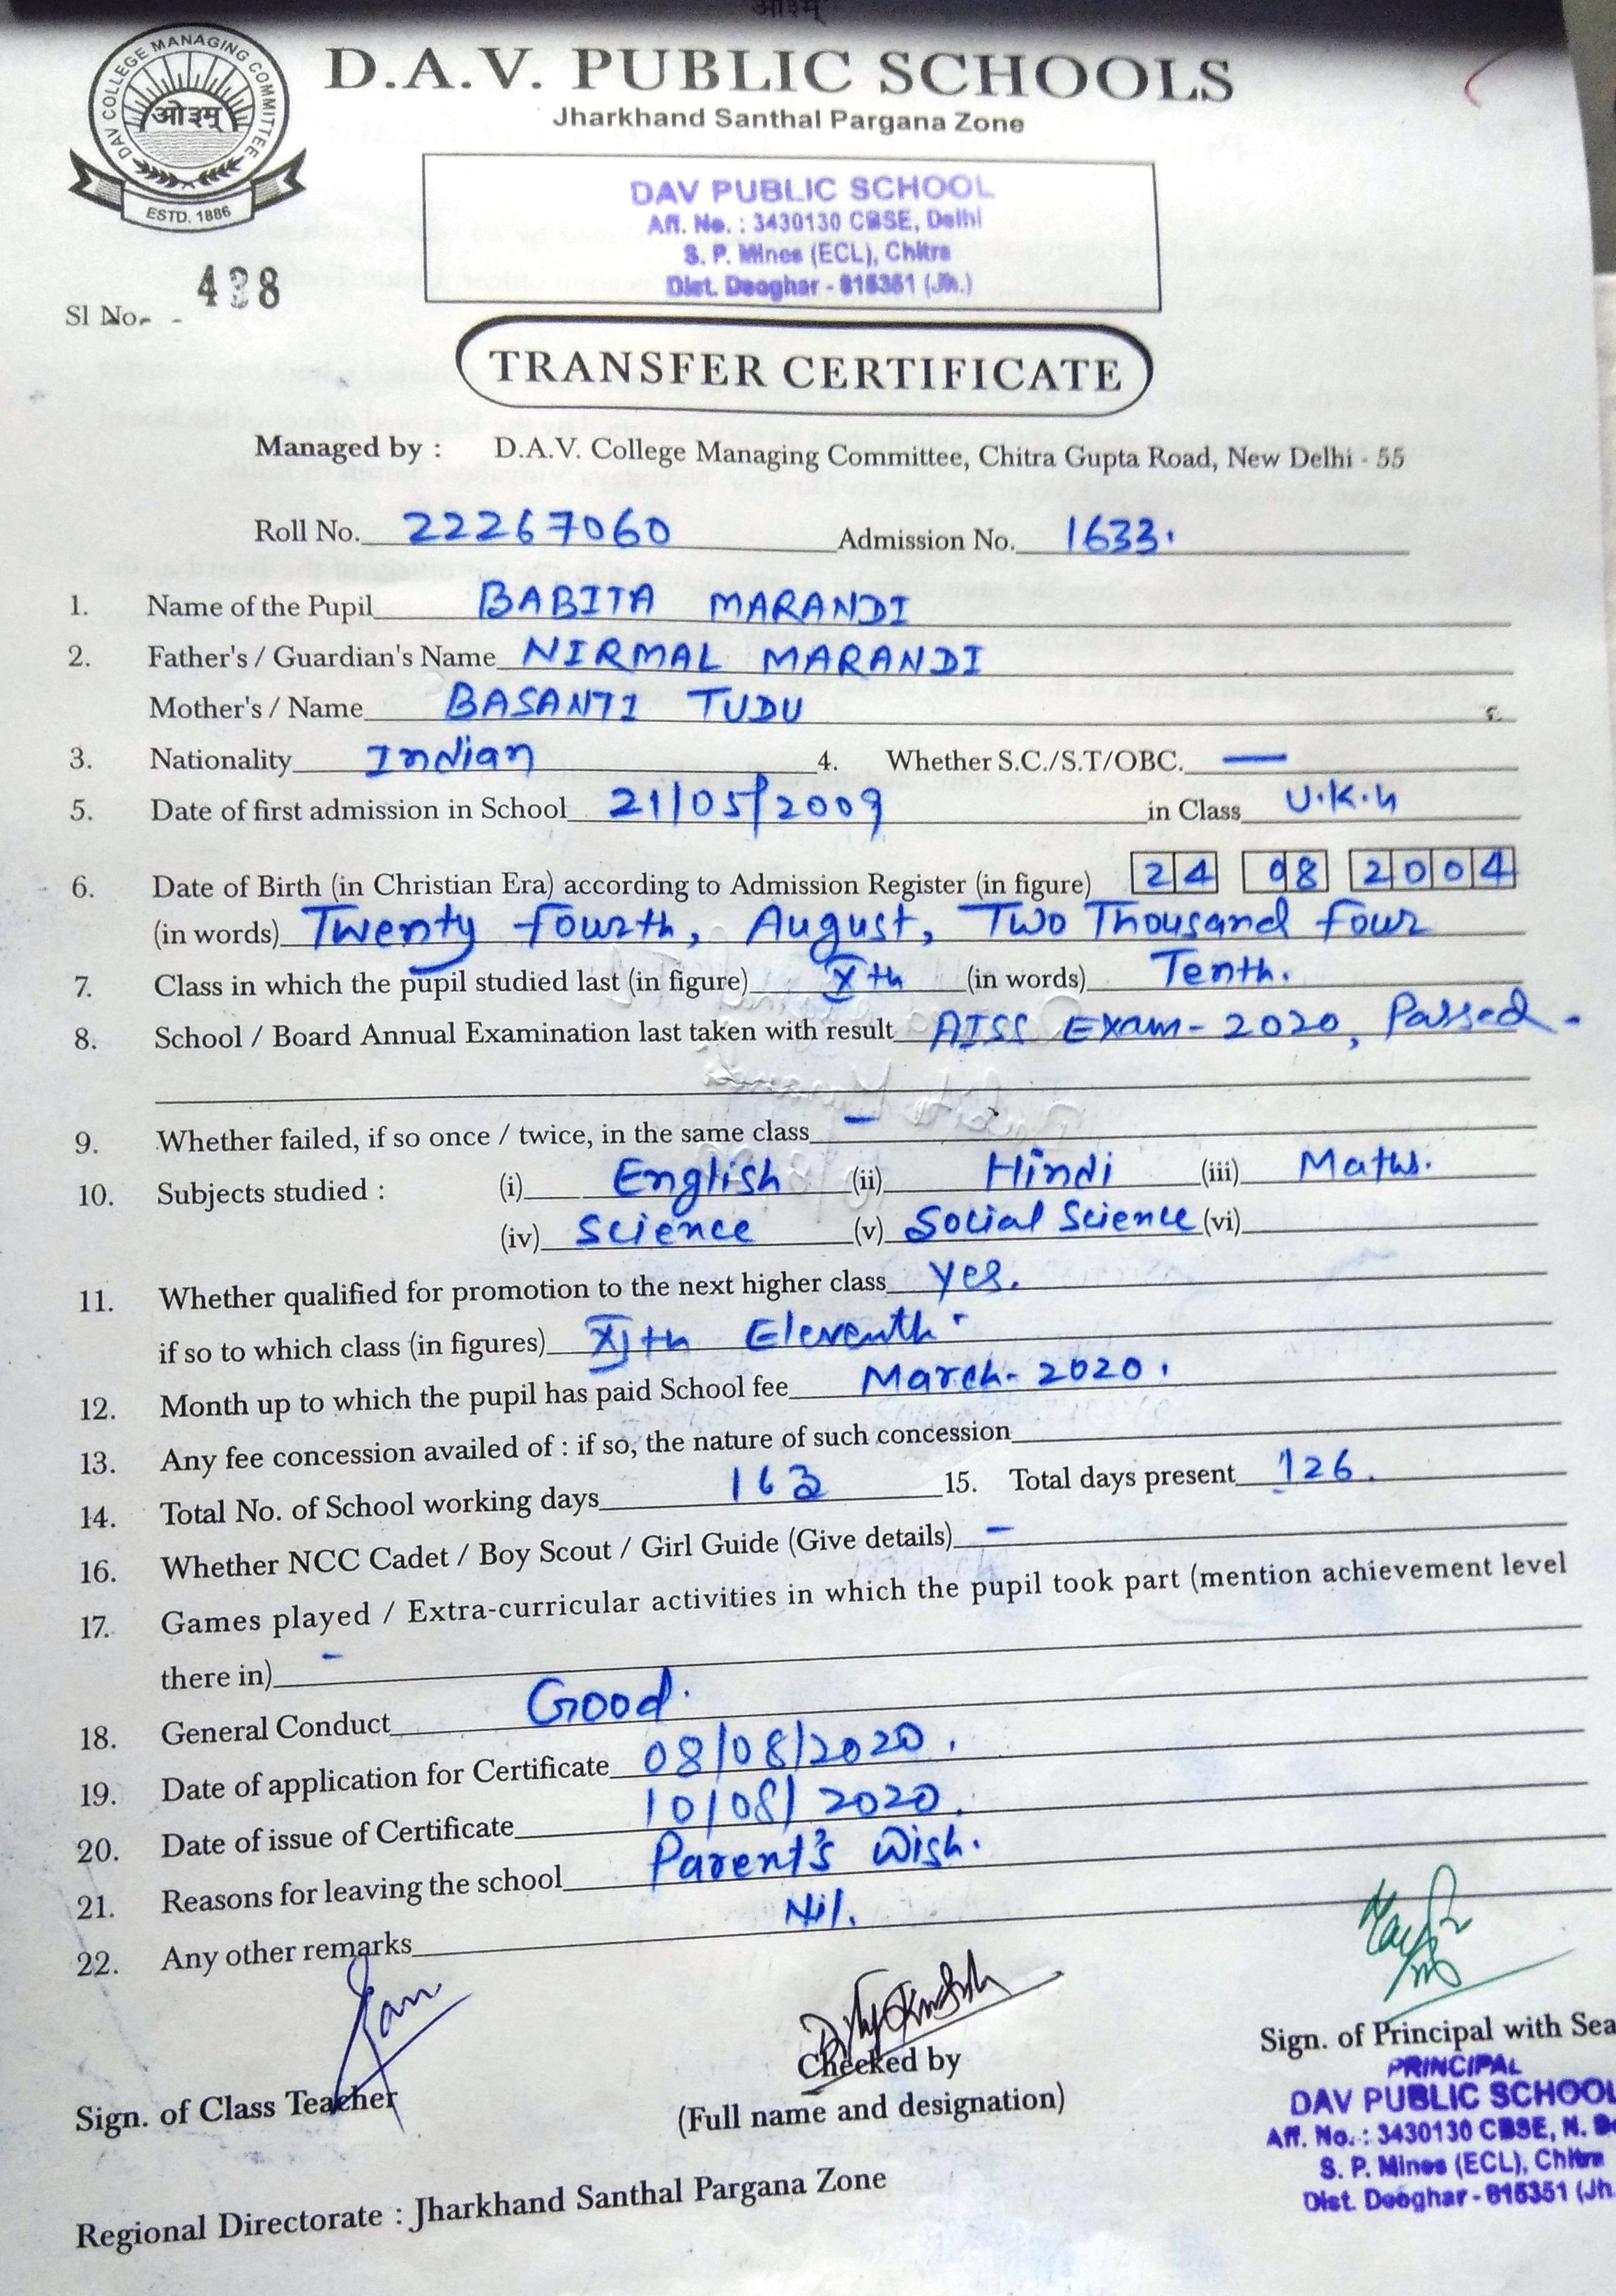 ओ३म्
DAV COLLEGE MANAGING COMMITTEE
ओ३म्
ESTD. 1886
D.A.V. PUBLIC SCHOOLS
Jharkhand Santhal Pargana Zone
DAV PUBLIC SCHOOL
Aff. No. : 3430130 CBSE, Delhi
S. P. Mines (ECL), Chitra
Dist. Deoghar - 815351 (Jh.)
Sl No. 438
TRANSFER CERTIFICATE
Managed by : D.A.V. College Managing Committee, Chitra Gupta Road, New Delhi - 55
Roll No. 22267060 Admission No. 1633.
1. Name of the Pupil BABITA MARANDI
2. Father's / Guardian's Name NIRMAL MARANDI
Mother's / Name BASANTI TUDU
3. Nationality Indian 4. Whether S.C./S.T/OBC. —
5. Date of first admission in School 21/05/2009 in Class U.K.G
6. Date of Birth (in Christian Era) according to Admission Register (in figure) 24 08 2004
(in words) Twenty fourth, August, Two Thousand four
7. Class in which the pupil studied last (in figure) Xth (in words) Tenth.
8. School / Board Annual Examination last taken with result AISS Exam- 2020, Passed -
9. Whether failed, if so once / twice, in the same class –
10. Subjects studied : (i) English (ii) Hindi (iii) Maths.
(iv) Science (v) Social Science (vi)
11. Whether qualified for promotion to the next higher class yes.
if so to which class (in figures) XIth Eleventh.
12. Month up to which the pupil has paid School fee March- 2020.
13. Any fee concession availed of : if so, the nature of such concession
14. Total No. of School working days 163 15. Total days present 126.
16. Whether NCC Cadet / Boy Scout / Girl Guide (Give details) –
17. Games played / Extra-curricular activities in which the pupil took part (mention achievement level
there in) -
18. General Conduct Good.
19. Date of application for Certificate 08/08/2020.
20. Date of issue of Certificate 10/08/2020.
21. Reasons for leaving the school Parent's Wish.
22. Any other remarks Nil.
Sign. of Class Teacher
Checked by
(Full name and designation)
Sign. of Principal with Sea
PRINCIPAL
DAV PUBLIC SCHOOL
Aff. No. : 3430130 CBSE, N. De
S. P. Mines (ECL), Chitra
Dist. Deoghar - 815351 (Jh.
Regional Directorate : Jharkhand Santhal Pargana Zone